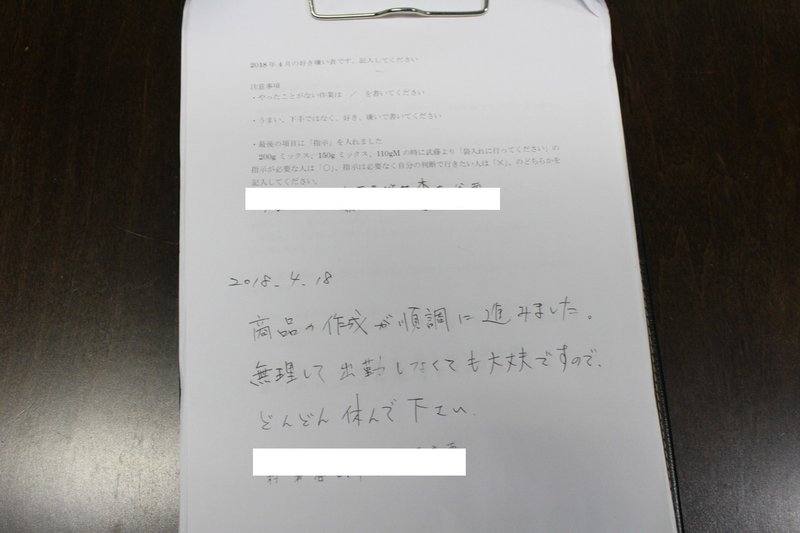 2018年4月の好き嫌い表です、記入してください
注意事項
・やったことがない作業は ／ を書いてください
・うまい、下手ではなく、好き、嫌いで書いてください
・最後の項目に「指示」を入れました
200g ミックス、150g ミックス、110gM の時に武藤より「袋入れに行ってください」の
指示が必要な人は「○」、指示は必要なく自分の判断で行きたい人は「×」、のどちらかを
記入してください。
2018.4.18
商品の作成が順調に進みました。
無理して出勤しなくても大丈夫ですので、
どんどん休んで下さい.